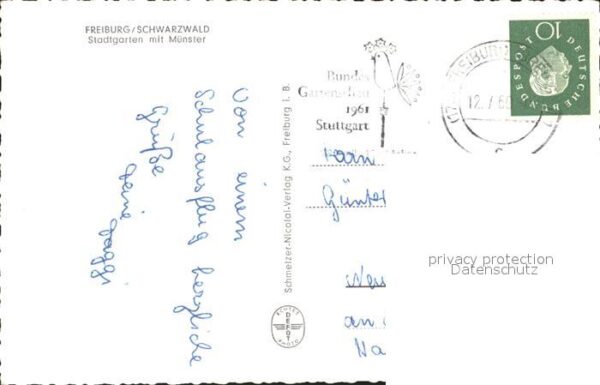 FREIBURG/SCHWARZWALD
Stadtgarten mit Münster
Von einem
Schulausflug herzliche
Grüße
Deine
Schmelzer-Nicolai-Verlag K.G., Freiburg i. B.
ECHTES
DEFOT
PHOTO
Bundes
Gartenschau
1961
Stuttgart
12.7.60
DEUTSCHE BUNDESPOST
10
Günter
an
privacy protection
Datenschutz